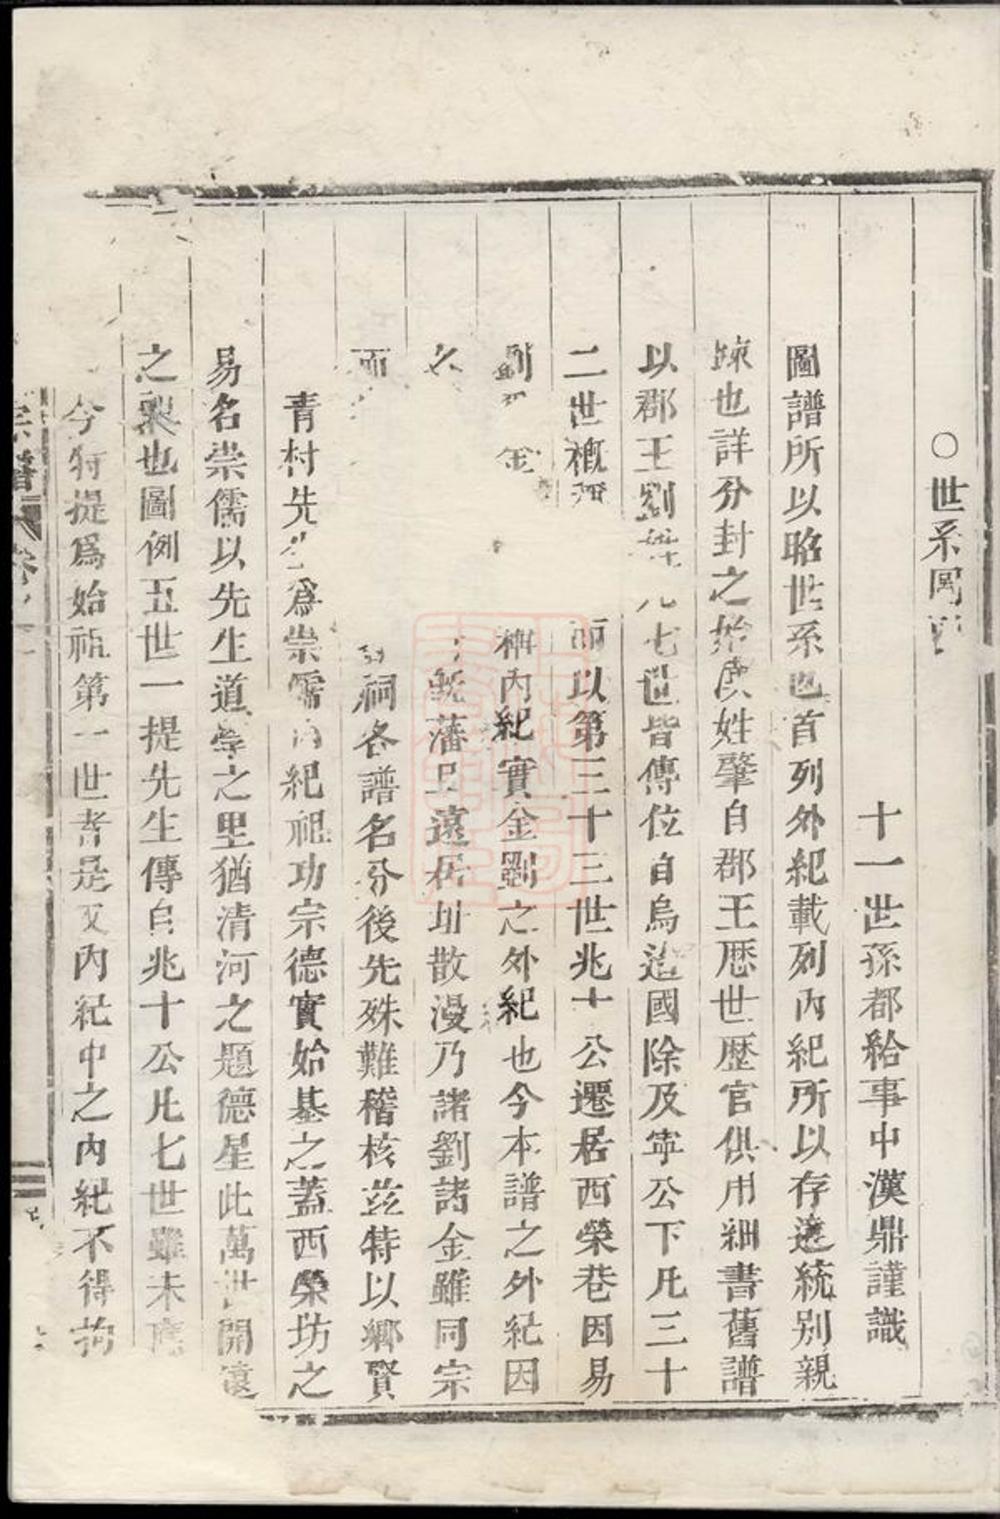 ○世系圖
十一世孫都給事中漢鼎謹識
圖譜所以昭世系也首列外紀載列內紀所以存遠統別親
踈也詳分封之始廣姓肇自郡王歷世歷官俱用細書舊譜
以郡王劉 凡七世皆傳位自烏 國除及寧公下凡三十
二世概 而以第三十三世兆十公遷居西榮巷因易
劉 金 內紀實金劉之外紀也今本譜之外紀因
名 藩且遠居址散漫乃諸劉諸金雖同宗
而 祠各譜名分後先殊難稽核茲特以鄉賢
青村先生爲崇儒內紀祖功宗德實始基之蓋西榮坊之
易名崇儒以先生道學之里猶清河之題德星此萬世開遠
之 也圖例五世一提先生傳自兆十公凡七世雖未應
今特提爲始祖第一世者是又內紀中之內紀不得拘
宗譜 卷